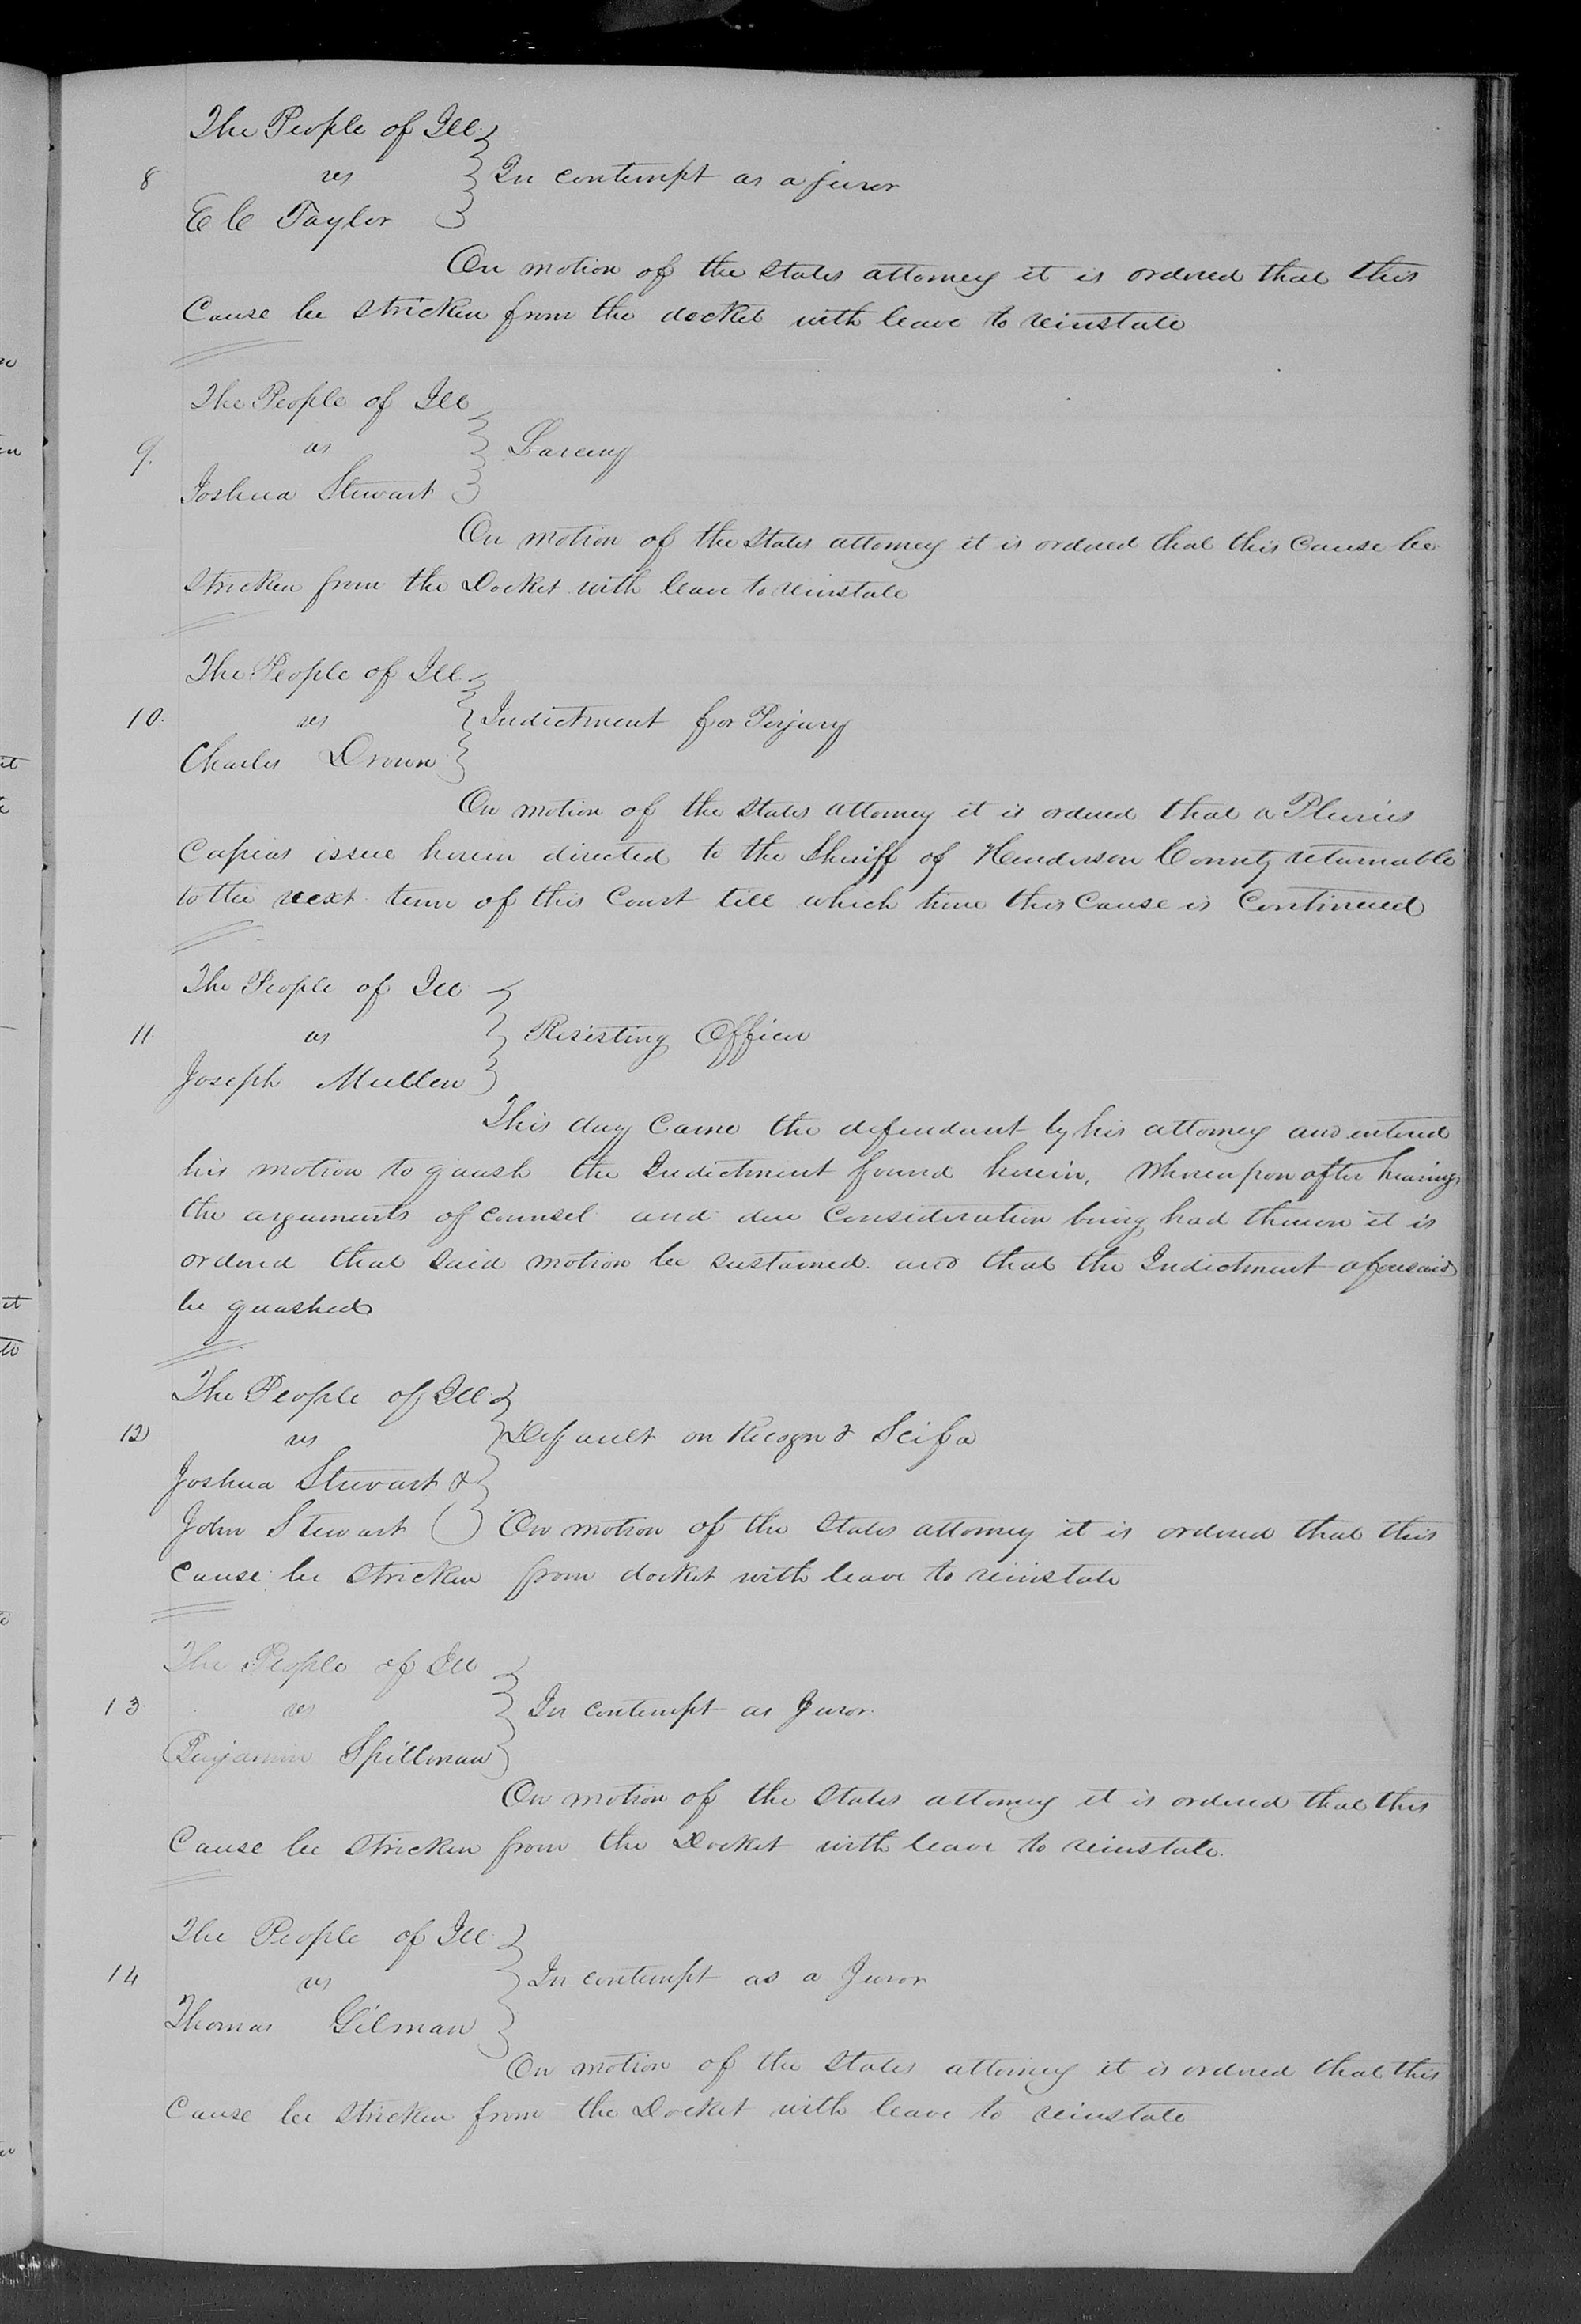 The People of Ill
8 vs In contempt as a juror
E C Taylor
On motion of the States attorney it is ordered that this
Cause be stricken from the docket with leave to reinstate
The People of Ill
9. vs Larceny
Joshua Stewart
On motion of the States attorney it is ordered that this Cause be
Stricken from the Docket with leave to reinstate
The People of Ill
10. vs Indictment for Perjury
Charles Drown
On motion of the States attorney it is ordered that a Pluries
Capias issue herein directed to the Sheriff of Henderson County returnable
to the next term of this Court till which time this Cause is Continued
The People of Ill
11 vs Resisting Officer
Joseph Mullen
This day Came the defendant by his attorney and entered
his motion to quash the Indictment found herein, Whereupon after hearing
the arguments of counsel and due Consideration being had thereon it is
ordered that said motion be sustained and that the Indictment aforesaid
be quashed
The People of Ill
12 vs Default on Recogn & Scifa
Joshua Stewart &
John Stewart On motion of the States attorney it is ordered that this
Cause be stricken from docket with leave to reinstate
The People of Ill
13 vs In contempt as Juror
Benjamin Spillman
On motion of the States attorney it is ordered that this
Cause be Stricken from the Docket with leave to reinstate.
The People of Ill
14 vs In contempt as a Juror
Thomas Gilman
On motion of the States attorney it is ordered that this
Cause be stricken from the Docket with leave to reinstate